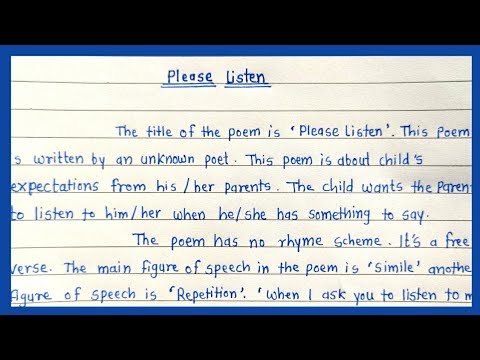 Please Listen
The title of the poem is 'Please Listen'. This poem
is written by an unknown poet. This poem is about child's
expectations from his/her parents. The child wants the Paren
to listen to him/her when he/she has something to say.
The poem has no rhyme scheme. It's a free
verse. The main figure of speech in the poem is 'Simile' anothe
figure of speech is 'Repetition'. 'When I ask you to listen to m